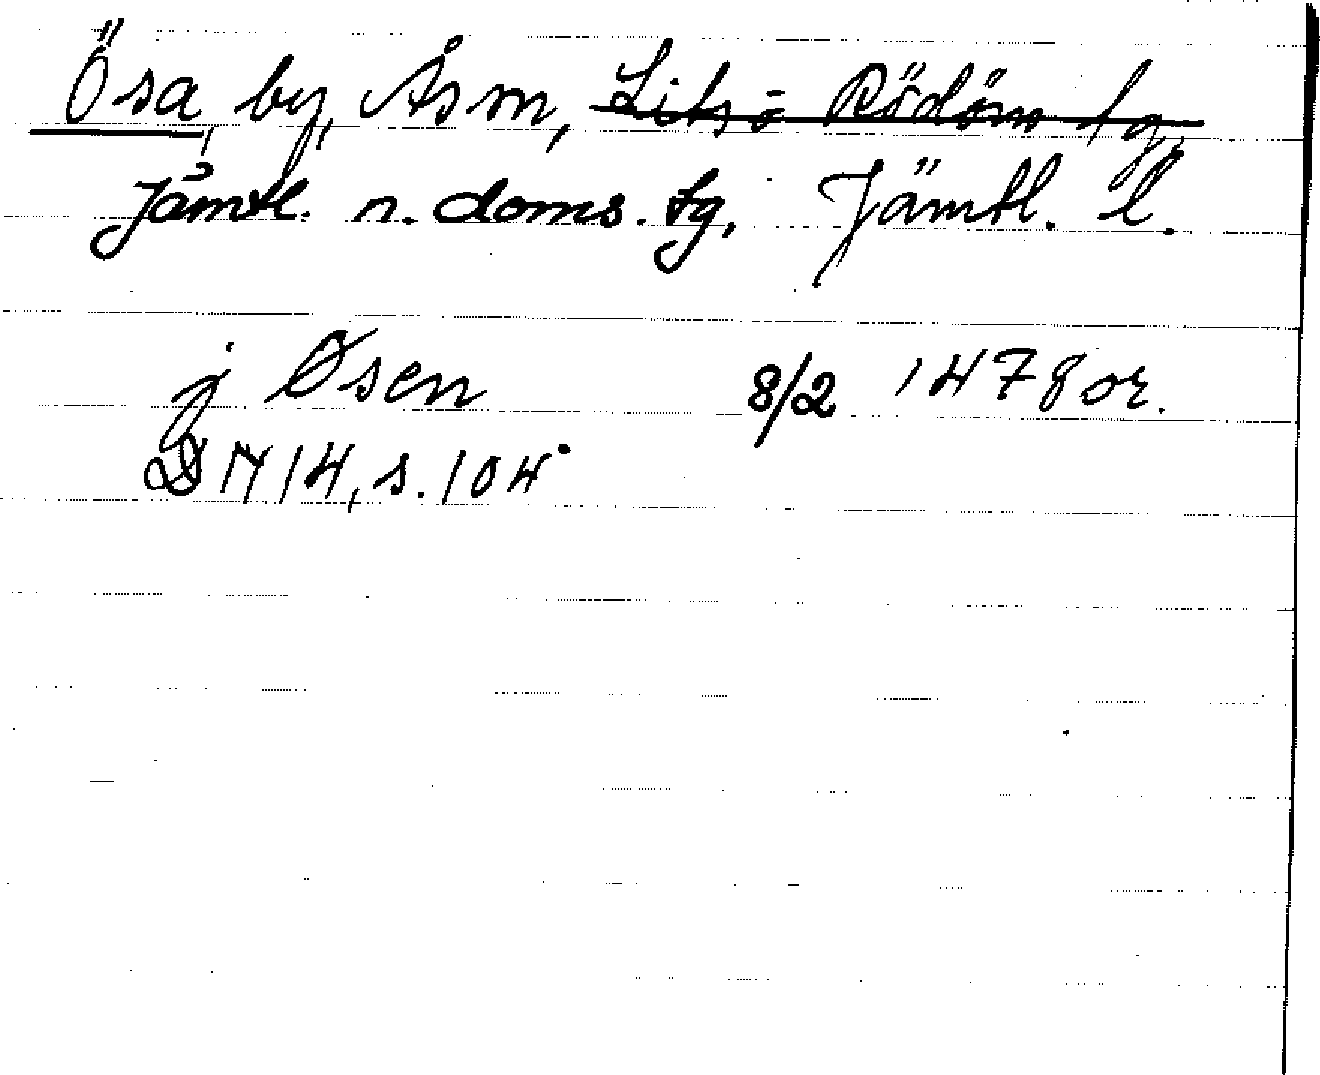 Ösa, by, Ås sn, Lits o Rödöns tg,
Jämtl. n. doms. tg, Jämtl. l.
j Øsen 8/2 1478 or.
DN 14, s. 104